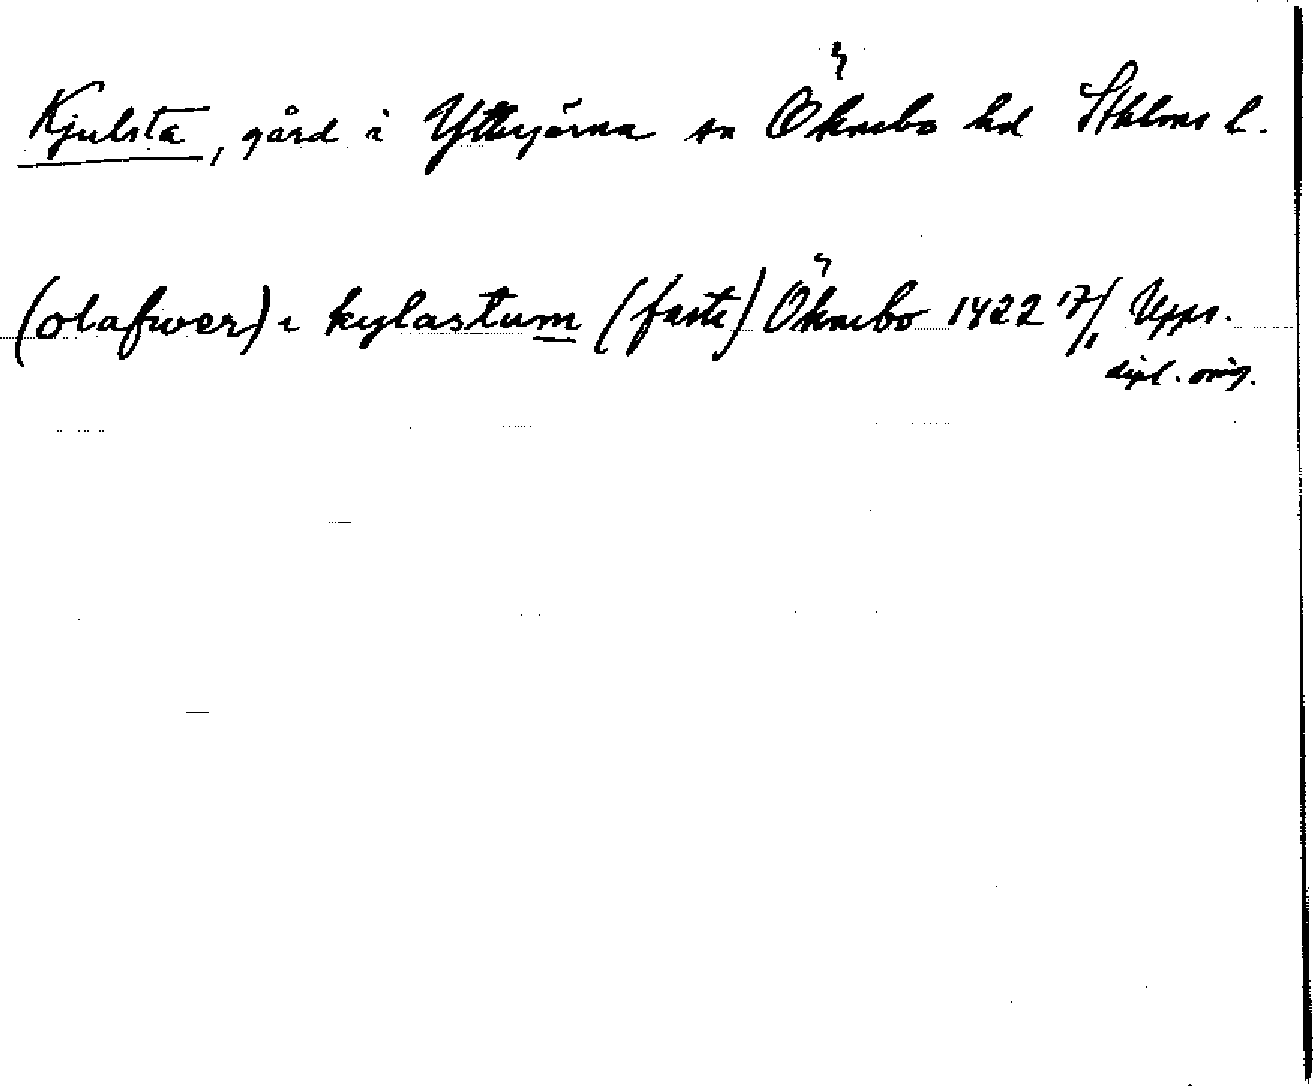 Kjulsta, gård i Ytterjärna sn Öknebo hd Sthlms l.
(olafwer) i kylastum (faste) Öknebo 1422 17/11 Upps.
dipl. orig.